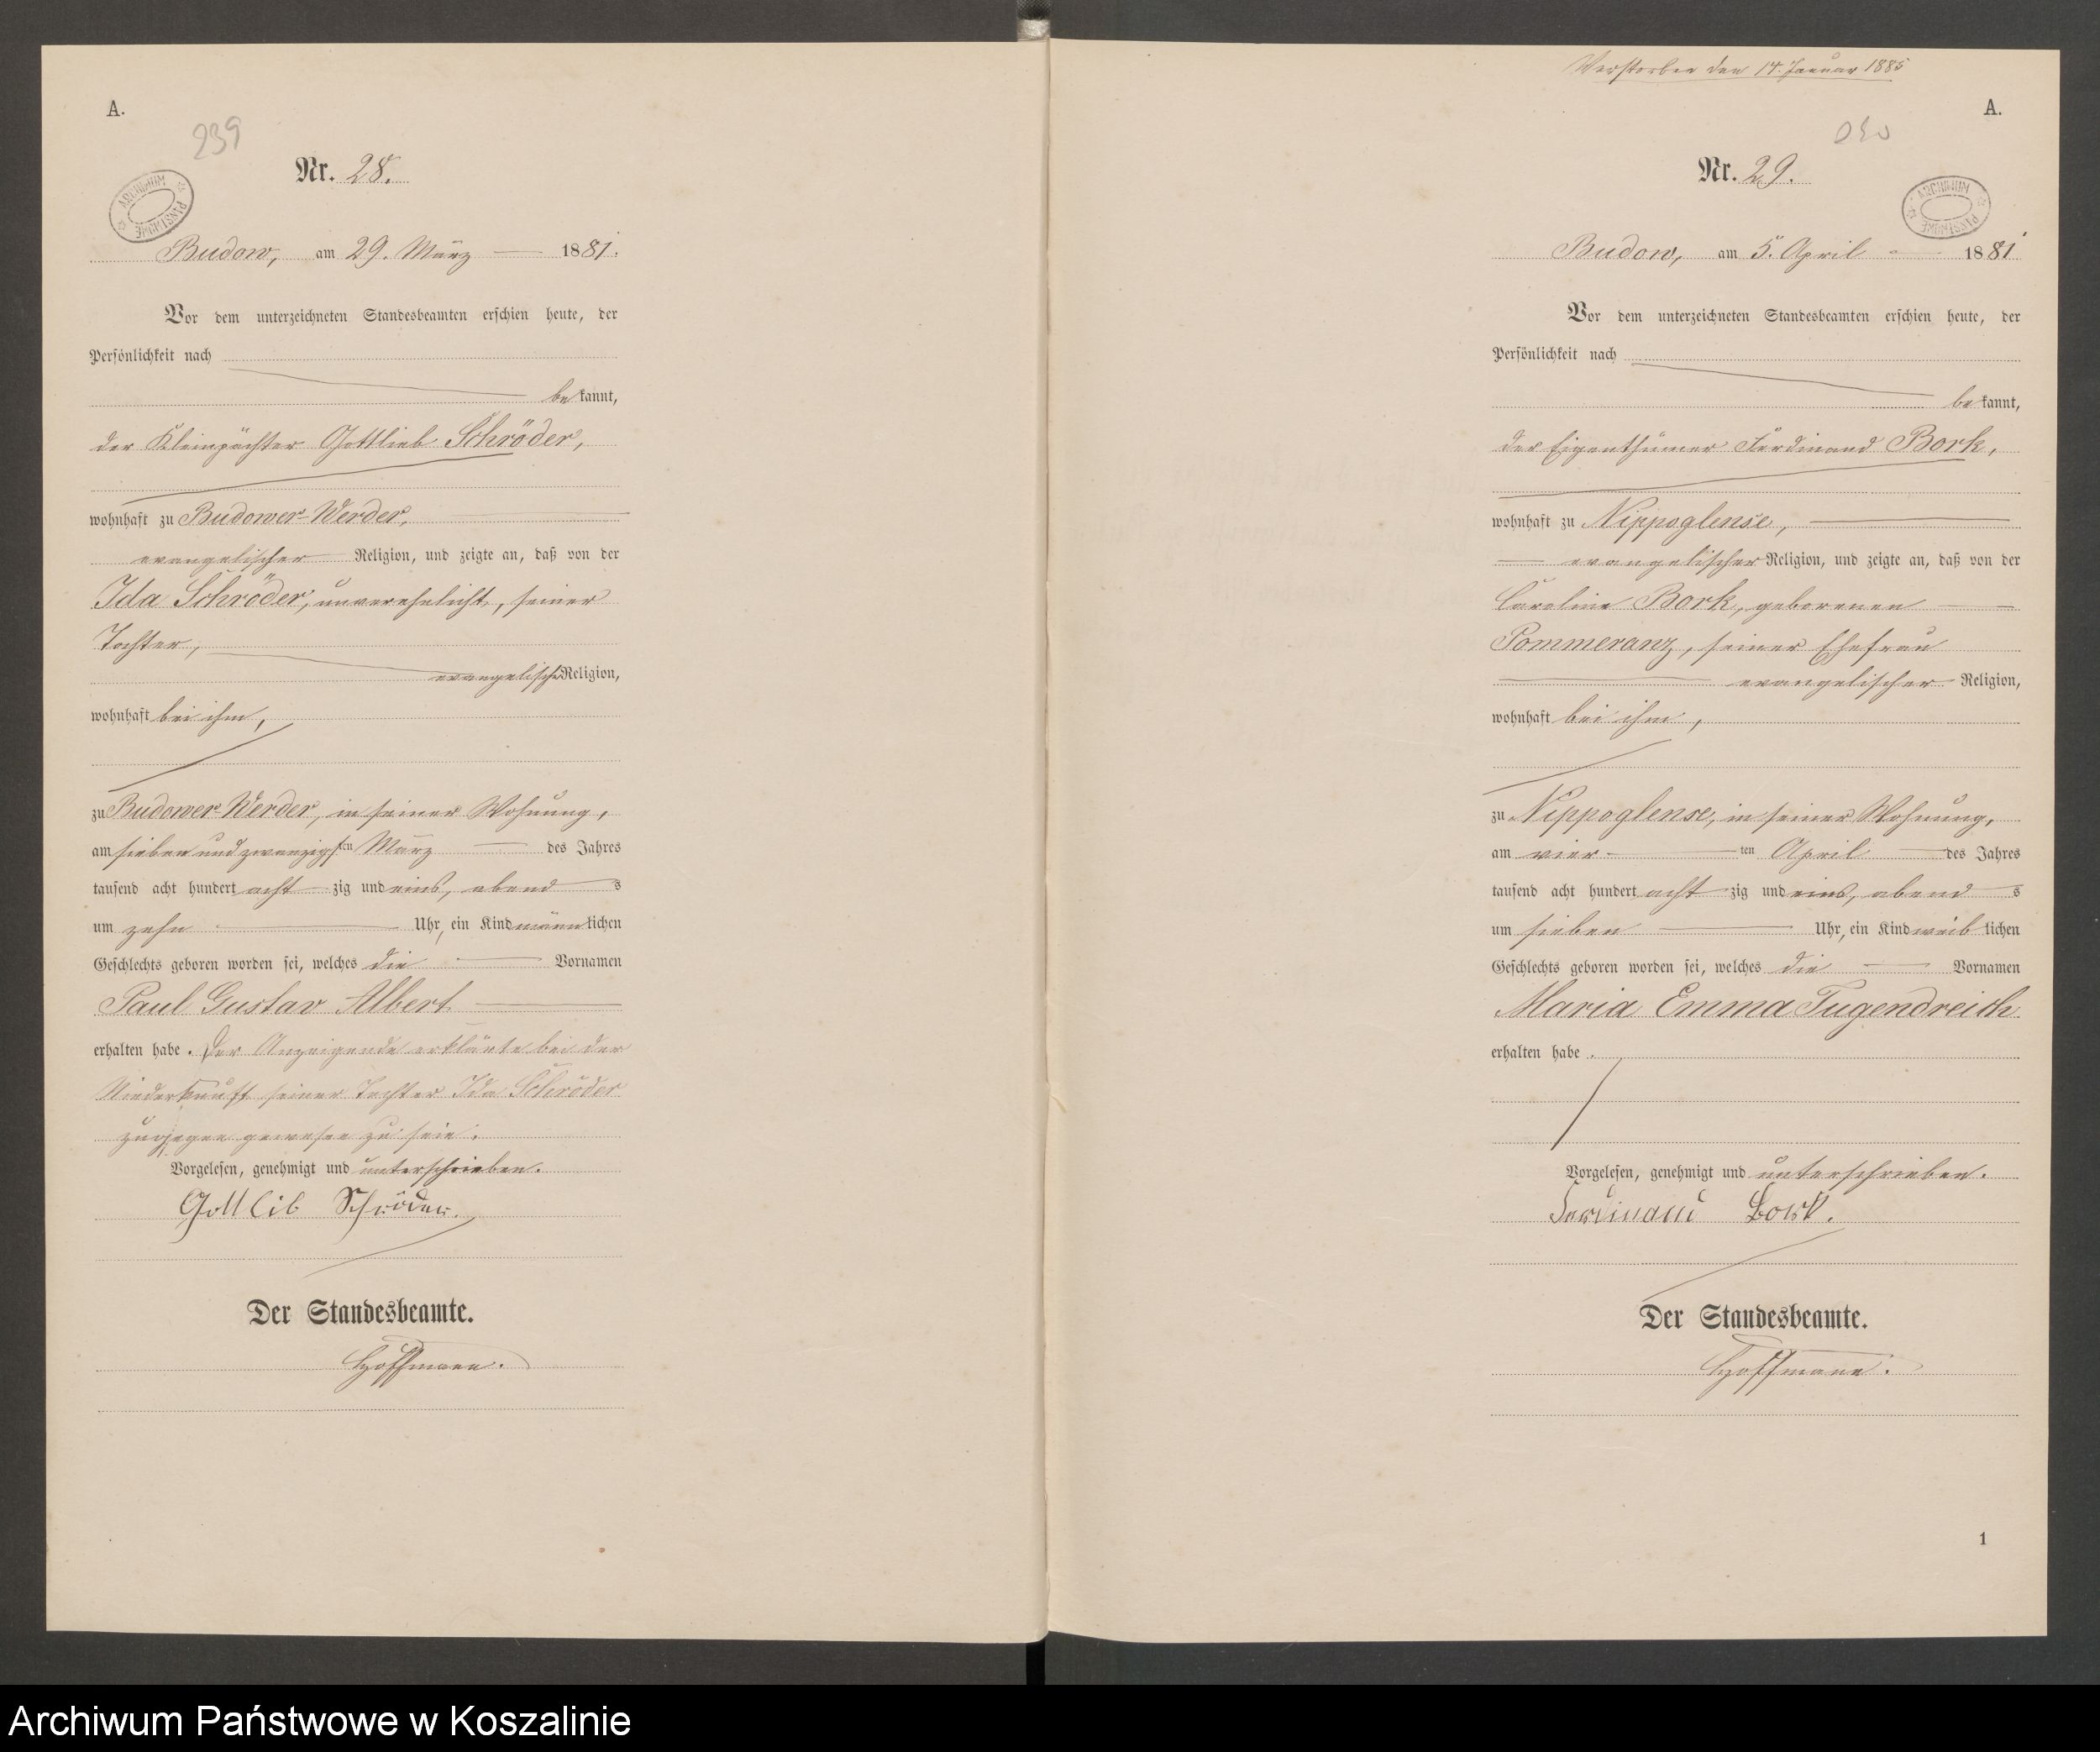 A.
239
Nr. 28.
ARCHIWUM PAŃSTWOWE
Budow, am 29. März 1881.
Vor dem unterzeichneten Standesbeamten erschien heute, der
Persönlichkeit nach
bekannt,
der Kleinpächter Gottlieb Schröder,
wohnhaft zu Budower-Werder,
evangelischer Religion, und zeigte an, daß von der
Ida Schröder, unverehelicht, seiner
Tochter,
evangelischer Religion,
wohnhaft bei ihm,
zu Budower-Werder, in seiner Wohnung,
am sieben und zwanzigsten März des Jahres
tausend acht hundert achtzig und eins, abends
um zehn Uhr, ein Kind männlichen
Geschlechts geboren worden sei, welches die Vornamen
Paul Gustav Albert
erhalten habe. Der Anzeigende erklärte bei der
Niederkunft seiner Tochter Ida Schröder
zugegen gewesen zu sein.
Vorgelesen, genehmigt und unterschrieben.
Gottlib Schröder.
Der Standesbeamte.
Hoffmann.
Verstorben den 14. Januar 1885
A.
Nr. 29.
ARCHIWUM PAŃSTWOWE
Budow, am 5. April 1881
Vor dem unterzeichneten Standesbeamten erschien heute, der
Persönlichkeit nach
bekannt,
der Eigenthümer Ferdinand Bork,
wohnhaft zu Nippoglense,
evangelischer Religion, und zeigte an, daß von der
Caroline Bork, geborenen
Pommeranz, seiner Ehefrau
evangelischer Religion,
wohnhaft bei ihm,
zu Nippoglense, in seiner Wohnung,
am vierten April des Jahres
tausend acht hundert achtzig und eins, abends
um sieben Uhr, ein Kind weiblichen
Geschlechts geboren worden sei, welches die Vornamen
Maria Emma Tugendreich
erhalten habe.
Vorgelesen, genehmigt und unterschrieben.
Ferdinand Bork.
Der Standesbeamte.
Hoffmann.
1
Archiwum Państwowe w Koszalinie